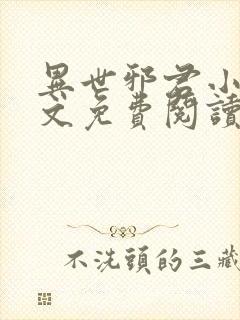 異世邪君小
文免費閱讀
不洗頭的三藏